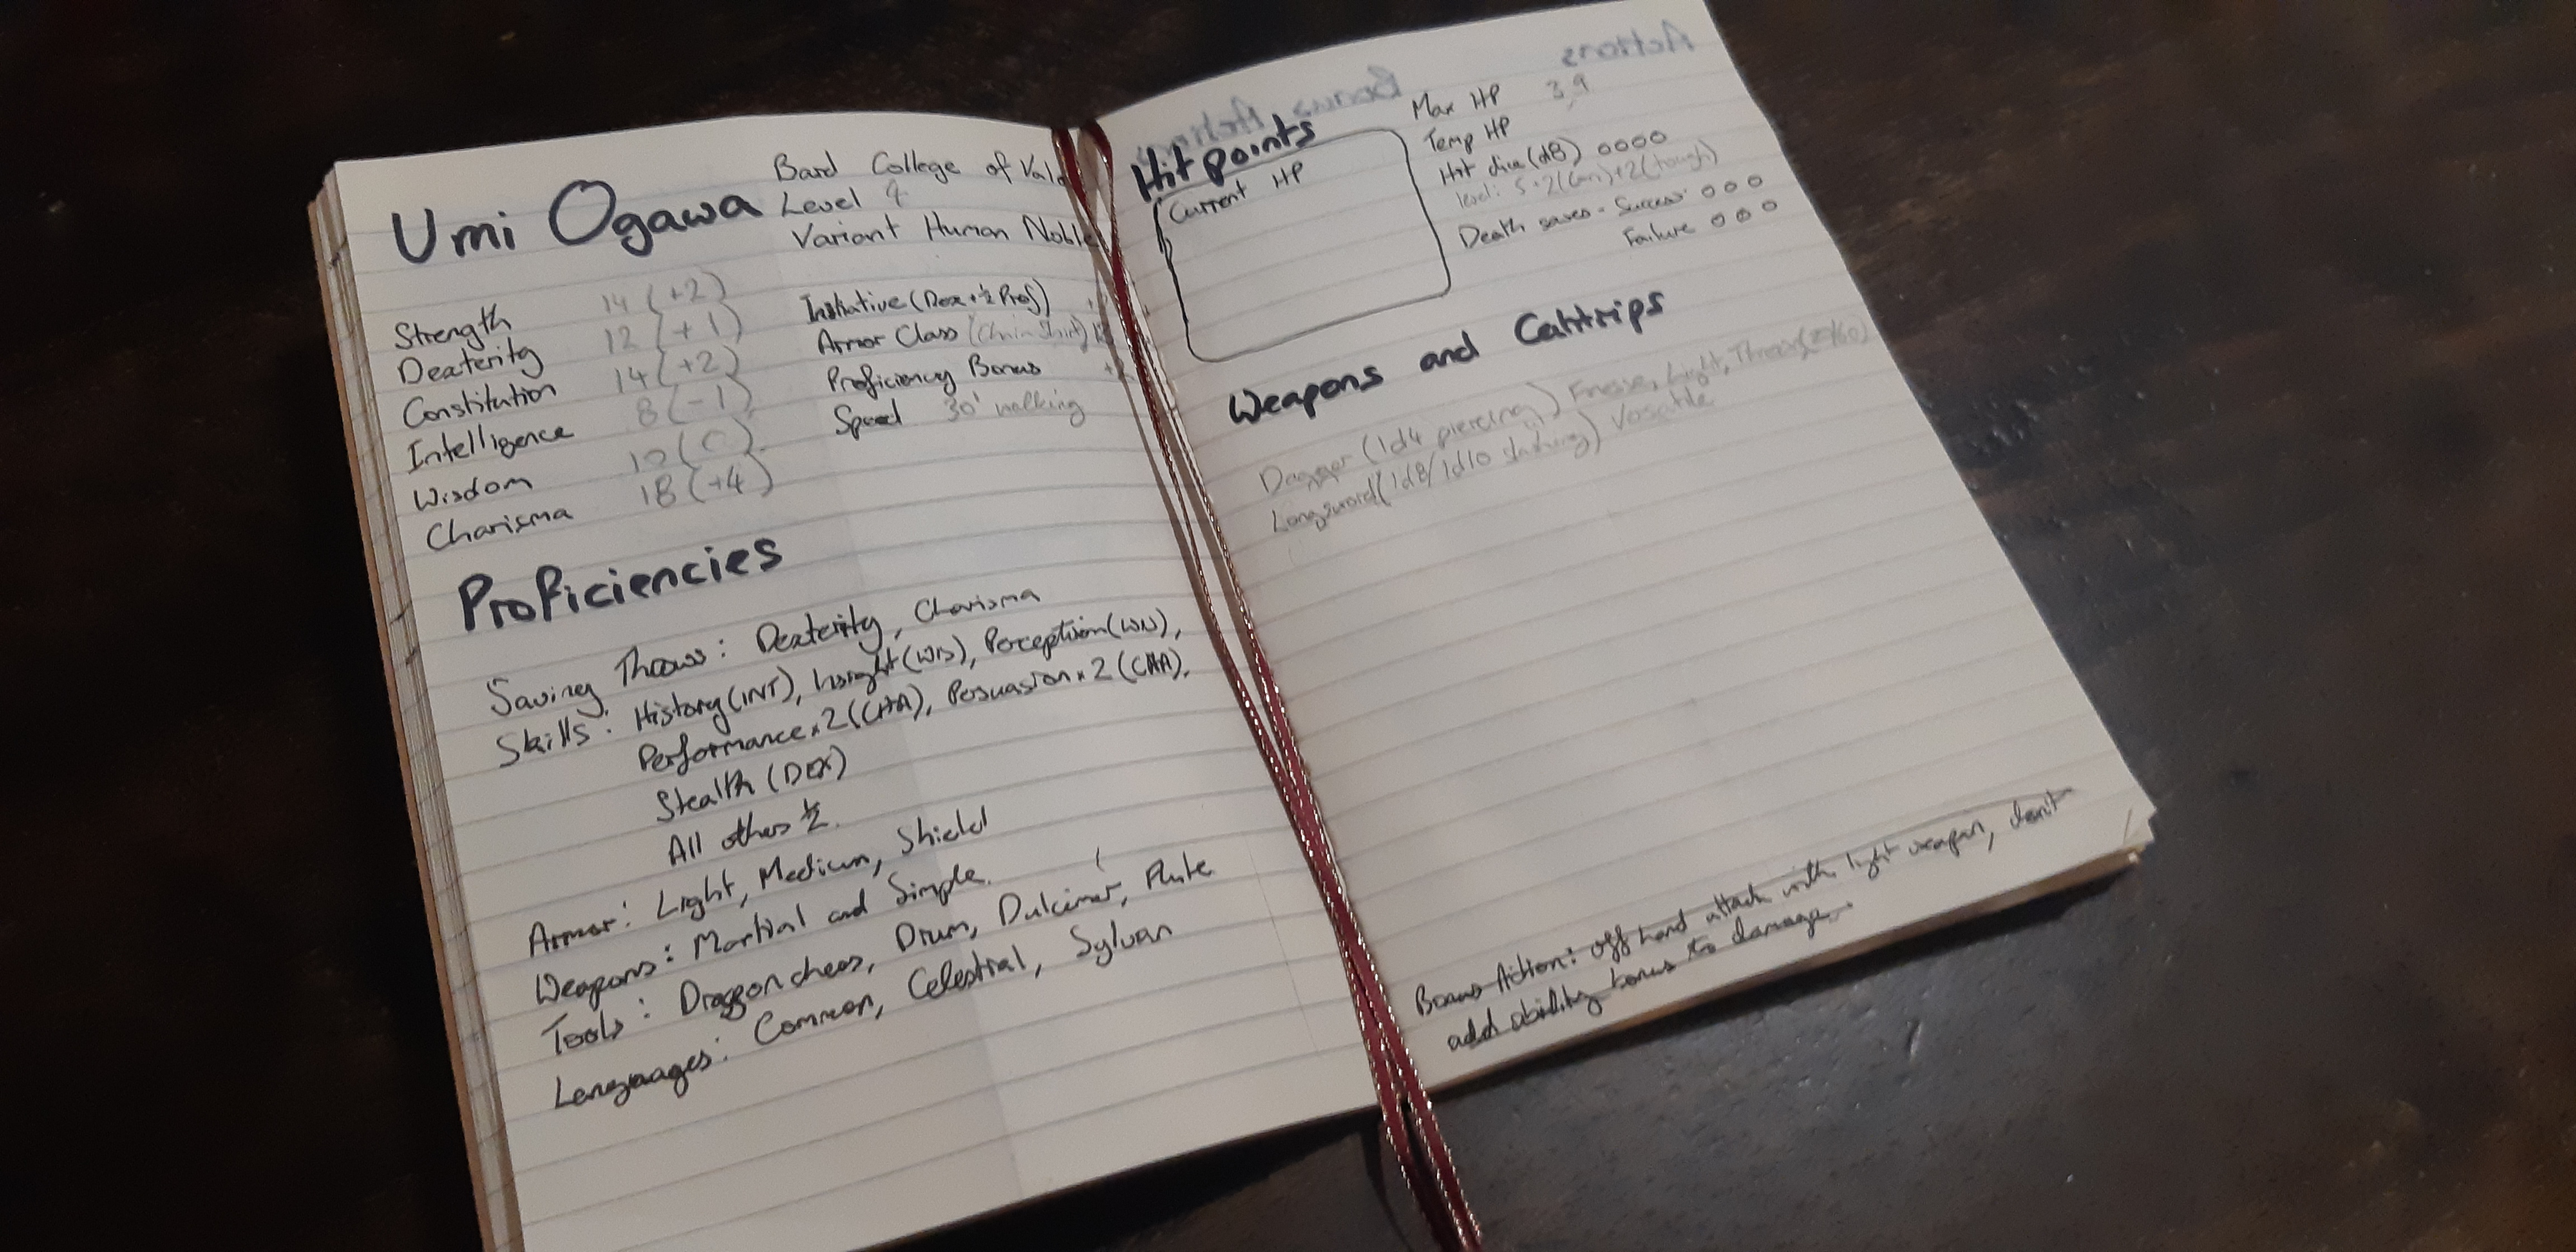 Umi Ogawa
Bard College of
Level 4
Variant Human Noble
Strength 14 (+2)
Dexterity 12 (+1)
Constitution 14 (+2)
Intelligence 8 (-1)
Wisdom 10 (0)
Charisma 18 (+4)
Initiative (Dex + ½ Prof)
Armor Class (Chain Shirt)
Proficiency Bonus
Speed 30' walking
Proficiencies
Saving Throws: Dexterity, Charisma
Skills: History (INT), Insight (WIS), Perception (WIS),
Performance x2 (CHA), Persuasion x2 (CHA),
Stealth (DEX)
All others ½.
Armor: Light, Medium, Shield
Weapons: Martial and Simple.
Tools: Dragonchess, Drum, Dulcimer, Flute
Languages: Common, Celestial, Sylvan
Actions
Bonus Actions
Hitpoints
Current HP
Max HP 39
Temp HP
Hit dice (d8) oooo
level: 5+2(con)+2(tough)
Death saves - Success: ooo
Failure ooo
Weapons and Cantrips
Dagger (1d4 piercing) Finesse, Light,
Longsword (1d8/1d10 slashing)
Bonus Action: off hand attack with light weapon, don't
add ability bonus to damage.